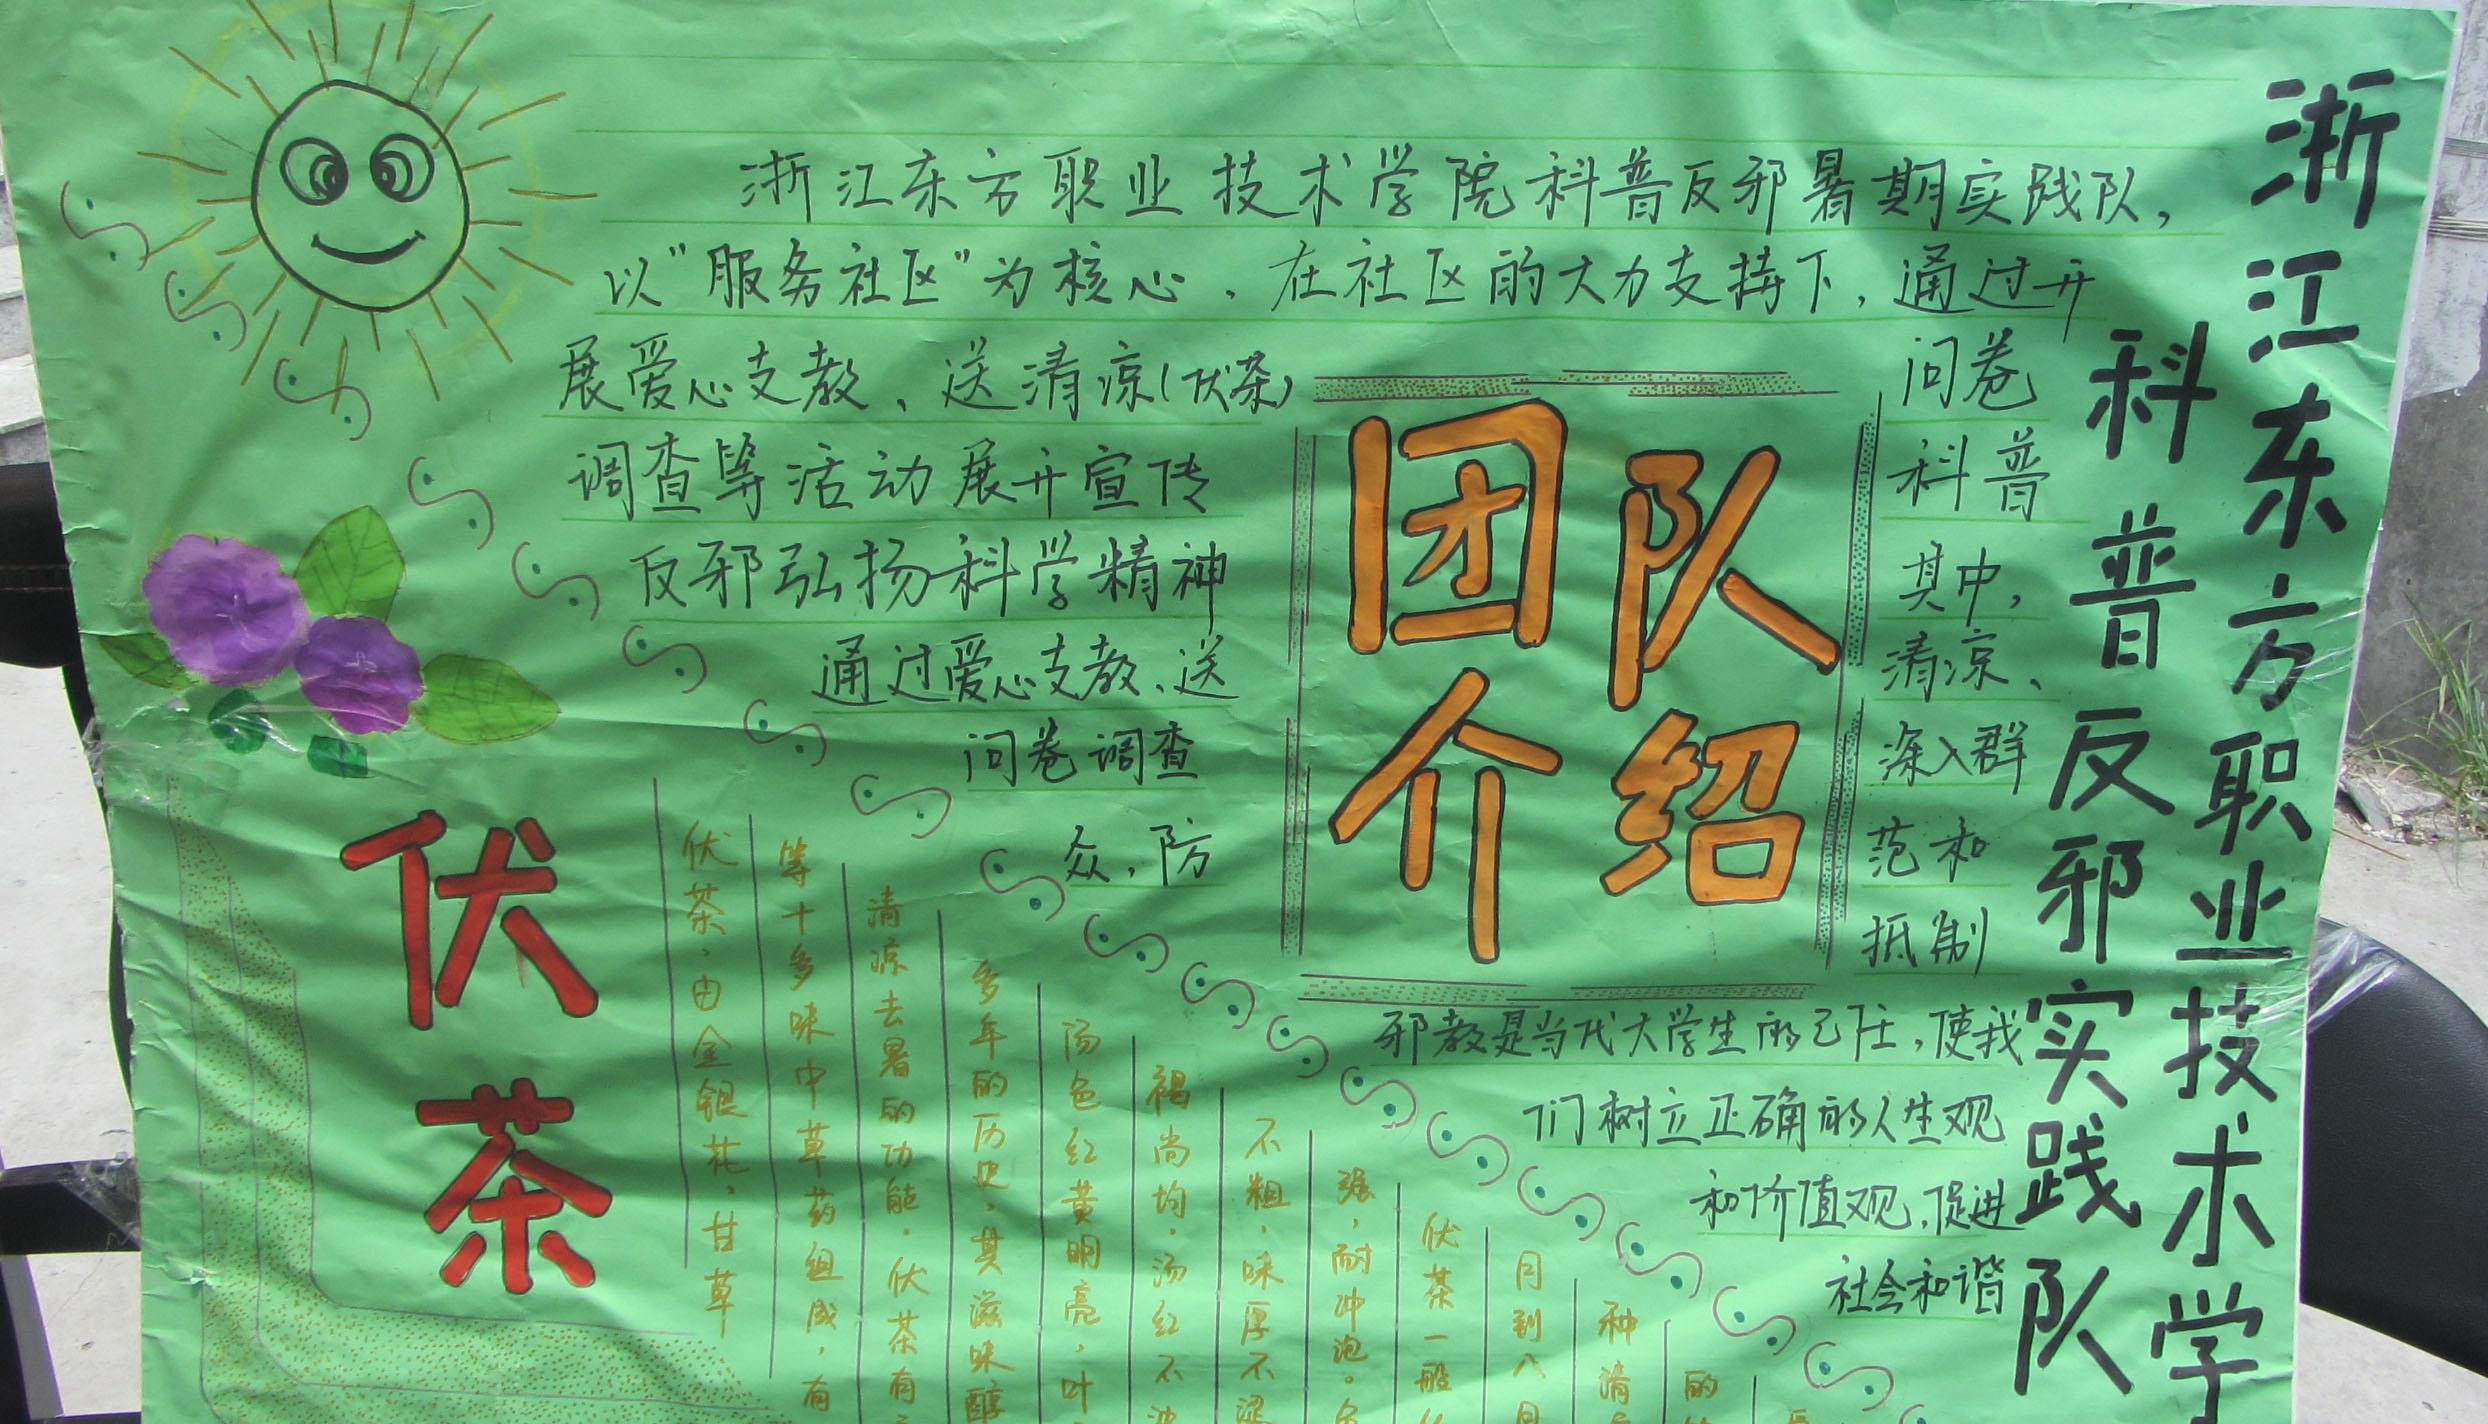 浙江东方职业技术学
科普反邪实践队
团队
介绍
浙江东方职业技术学院科普反邪暑期实践队，
以"服务社区"为核心，在社区的大力支持下，通过开
展爱心支教、送清凉(伏茶) 问卷
调查等活动展开宣传 科普
反邪弘扬科学精神 其中，
通过爱心支教、送 清凉、
问卷调查 深入群
众，防 范和
抵制
邪教是当代大学生的己任，使我
们树立正确的人生观
和价值观，促进
社会和谐
伏茶
伏茶，由金银花，甘草
等十多味中草药组成，有
清凉去暑的功能。伏茶有
多年的历史，其滋味醇
汤色红黄明亮，叶
褐尚均。汤红不
不粗，味厚不涩
强，耐冲泡。
伏茶一般
月到八月
种清
的